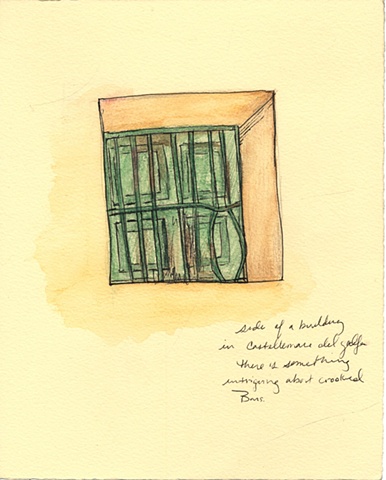 side of a building
in Castellemare del golfo
there is something
intriguing about crooked
Bars.